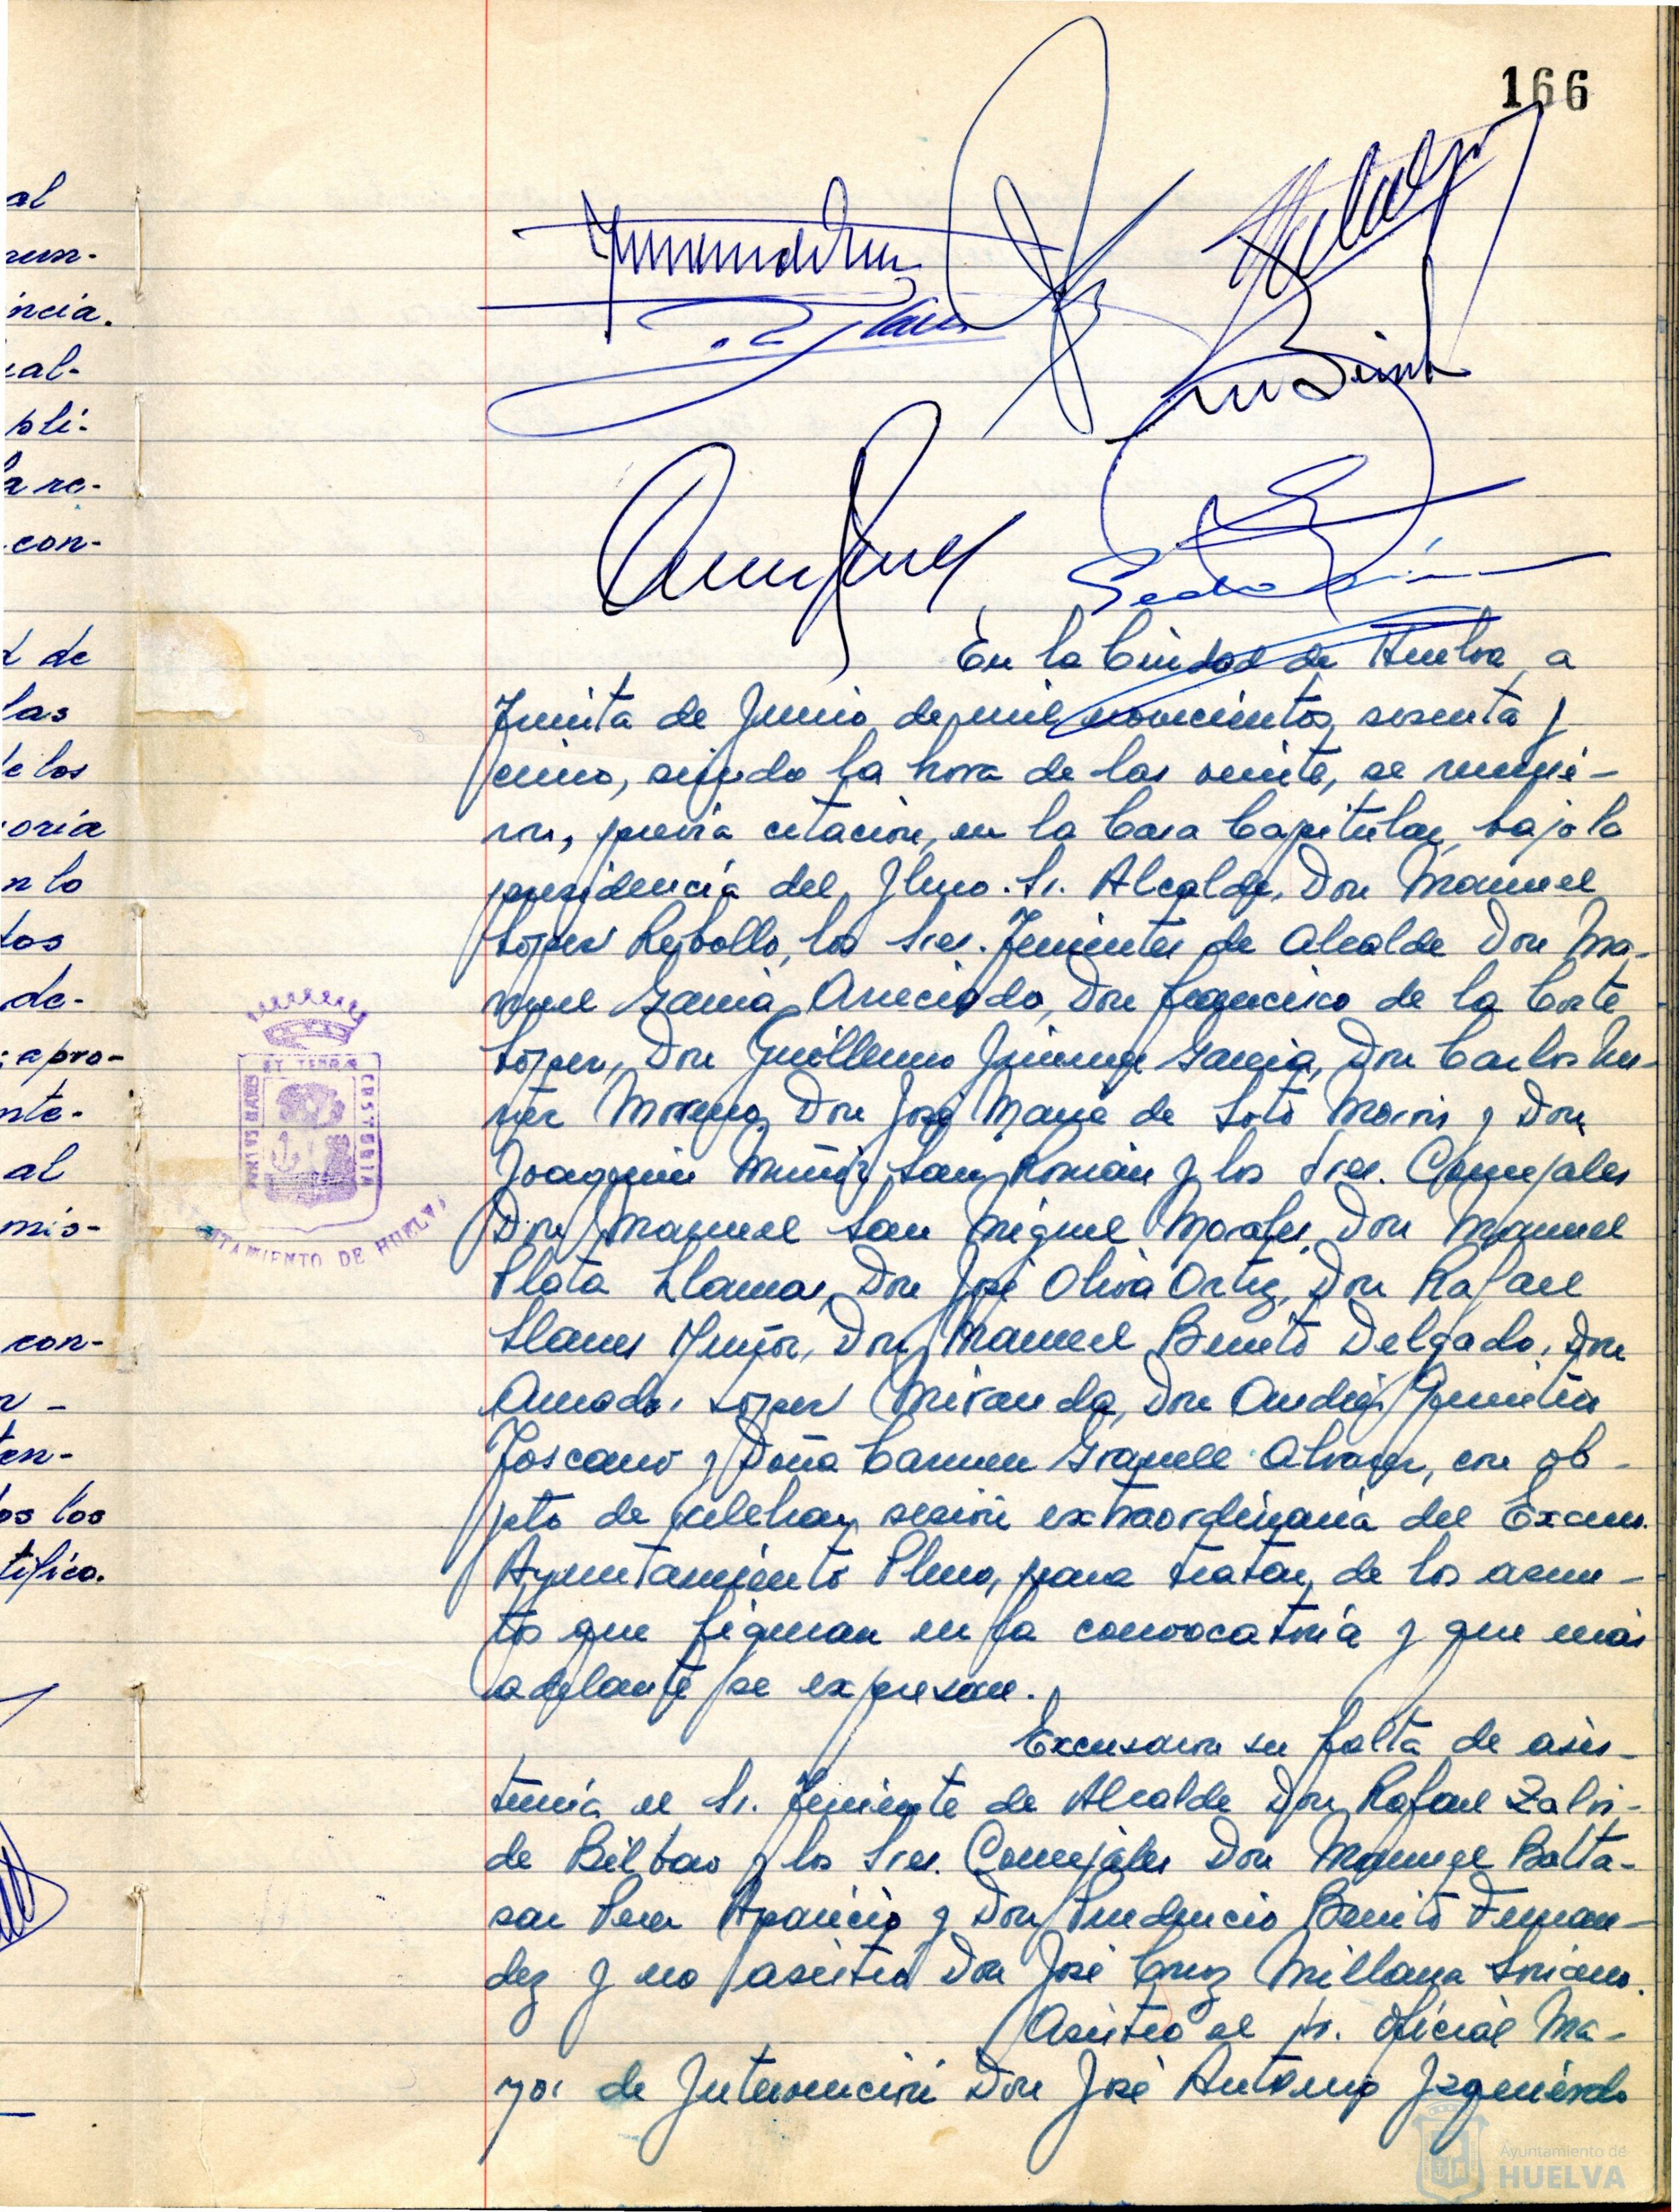 166
al
mun-
incia.
ual-
pli-
la re-
con-
d de
las
de los
oria
n lo
tos
de-
apro-
nte-
al
mis-
con-
n -
ten-
os los
tifico.
En la Ciudad de Huelva, a
Treinta de Junio de mil novecientos sesenta y
cinco, siendo la hora de las veinte, se reunie-
ron, previa citación, en la Casa Capitular, bajo la
presidencia del Ilmo. Sr. Alcalde, Don Manuel
López Rebollo, los Sres. Tenientes de Alcalde Don Ma-
nuel García Areciado, Don Francisco de la Corte
López, Don Guillermo Jimenez García, Don Carlos
Moreno, Don José María de Soto Morón y Don
Joaquín Muñiz San Román y los Sres. Concejales
Don Manuel San Miguel Morales, Don Manuel
Plata Llamas, Don José Oliva Ortiz, Don Rafael
Llanes Muñoz, Don Manuel Benito Delgado, Don
Amador López Miranda, Don Andrés Quintín
Toscano y Doña Carmen Granell Alvarez, con ob-
jeto de celebrar sesión extraordinaria del Excmo.
Ayuntamiento Pleno, para tratar de los asun-
tos que figuran en la convocatoria y que más
adelante se expresan.
Excusaron su falta de asis-
tencia el Sr. Teniente de Alcalde Don Rafael Zalvi-
de Bilbao y los Sres. Concejales Don Manuel Balta-
sar Pérez Aparicio y Don Prudencio Benito Fernan-
dez y no asistió Don José Cruz Millana Soriano.
Asistió el Sr. Oficial Ma-
yor de Intervención Don José Antonio Izquierdo
PORTUS MARIS
ET TERRAE
CUSTODIA
AYUNTAMIENTO DE HUELVA
Ayuntamiento de
HUELVA